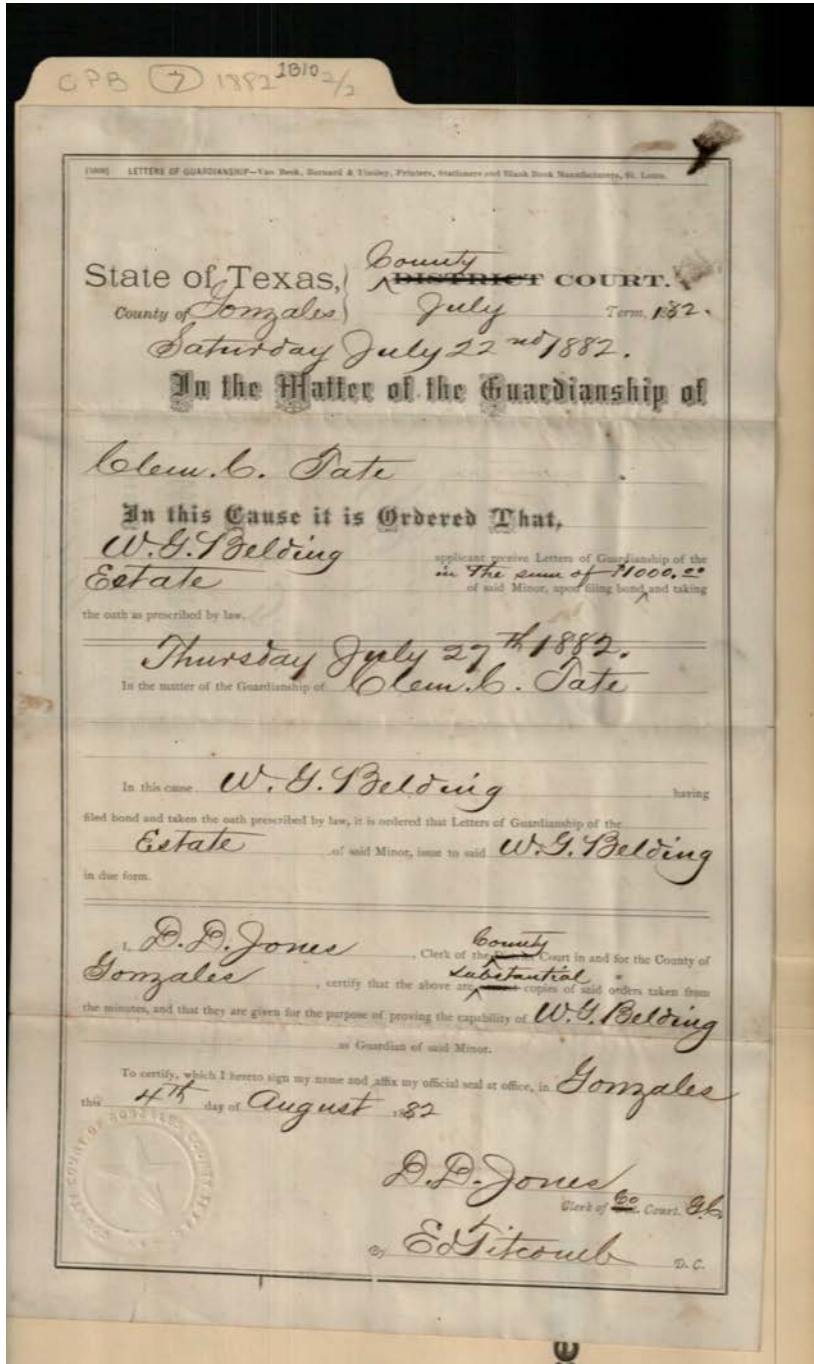 CPB 7 1882 1B10 2/2
LETTERS OF GUARDIANSHIP—Van Beek, Barnard & Tinsley, Printers, Stationers and Blank Book Manufacturers, St. Louis.
County
State of Texas, DISTRICT COURT.
County of Gonzales July Term, 1882.
Saturday July 22nd 1882.
In the Matter of the Guardianship of
Clem. C. Tate
In this Cause it is Ordered That,
W. G. Belding applicant receive Letters of Guardianship of the
in the sum of $1000.00
Estate of said Minor, upon filing bond and taking
the oath as prescribed by law.
Thursday July 27th 1882.
In the matter of the Guardianship of Clem. C. Tate
In this cause W. G. Belding having
filed bond and taken the oath prescribed by law, it is ordered that Letters of Guardianship of the
Estate of said Minor, issue to said W. G. Belding
in due form.
County
I, D. D. Jones, Clerk of the Court in and for the County of
substantial
Gonzales, certify that the above are copies of said orders taken from
the minutes, and that they are given for the purpose of proving the capability of W. G. Belding
as Guardian of said Minor.
To certify, which I hereto sign my name and affix my official seal at office, in Gonzales
this 4th day of August 1882
COUNTY COURT OF GONZALES COUNTY TEXAS
D. D. Jones
Clerk of Co Court. G.C.
By Ed Titcomb D. C.